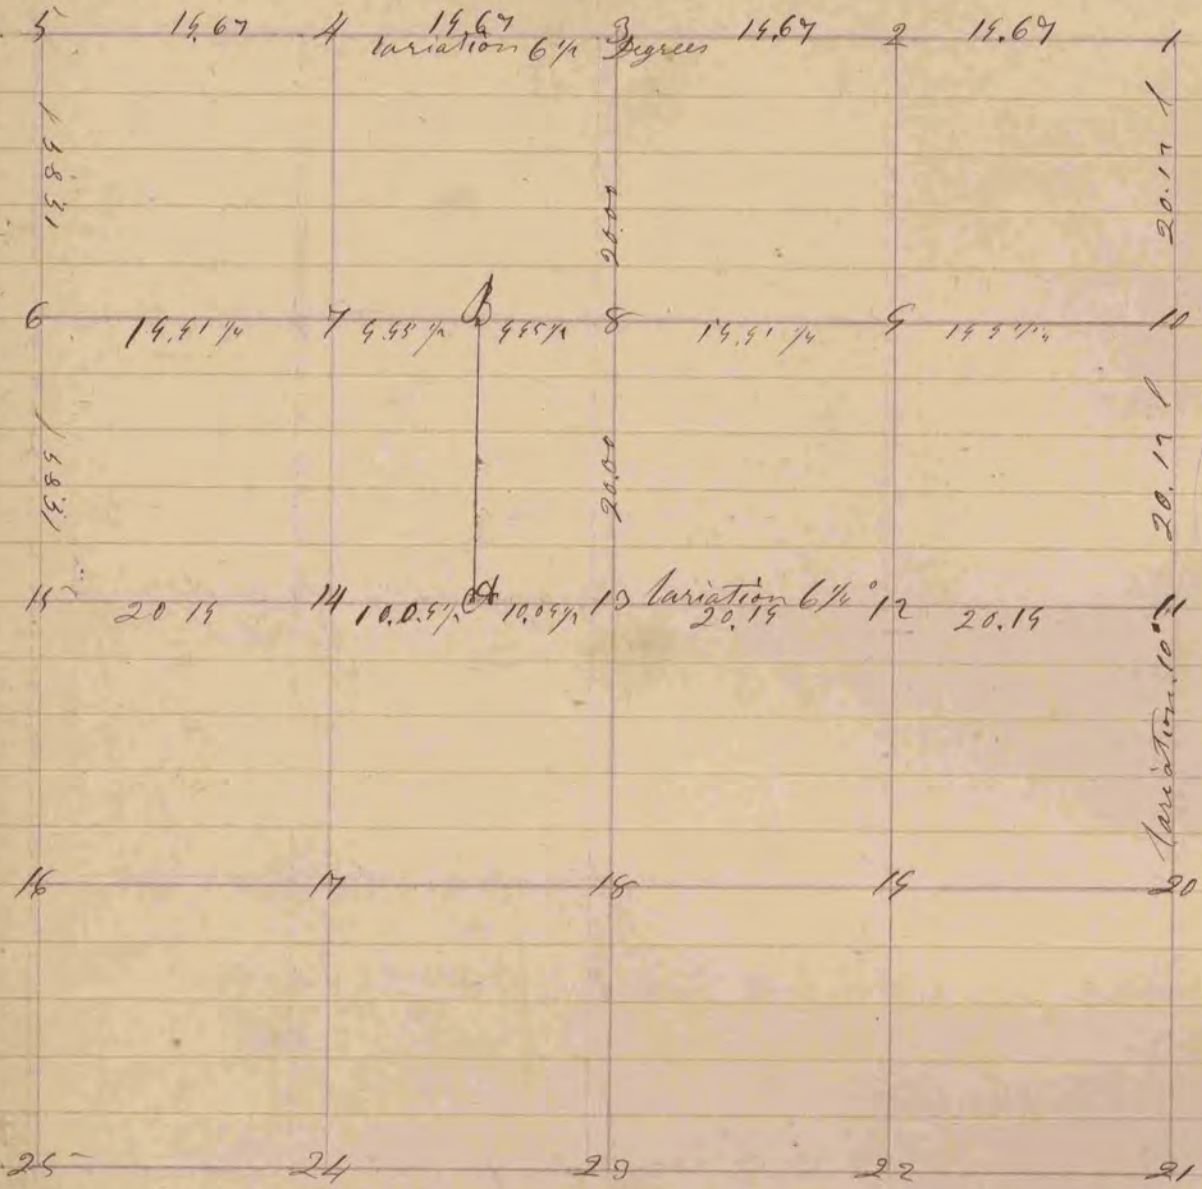 5 19.67 4 19.67 3 19.67 2 19.67 1
Variation 6 1/2 Degrees
1983
20.00
20.17
6 19.91 1/4 7 9.95 1/2 B 9.95 1/2 8 19.91 1/4 9 19.91 1/4 10
1983
20.00
20.17
15 20 19 14 10.09 1/2 A 10.09 1/2 13 Variation 6 1/4° 12 20.19 11
20.19
Variation 10°
16 17 18 19 20
25 24 23 22 21